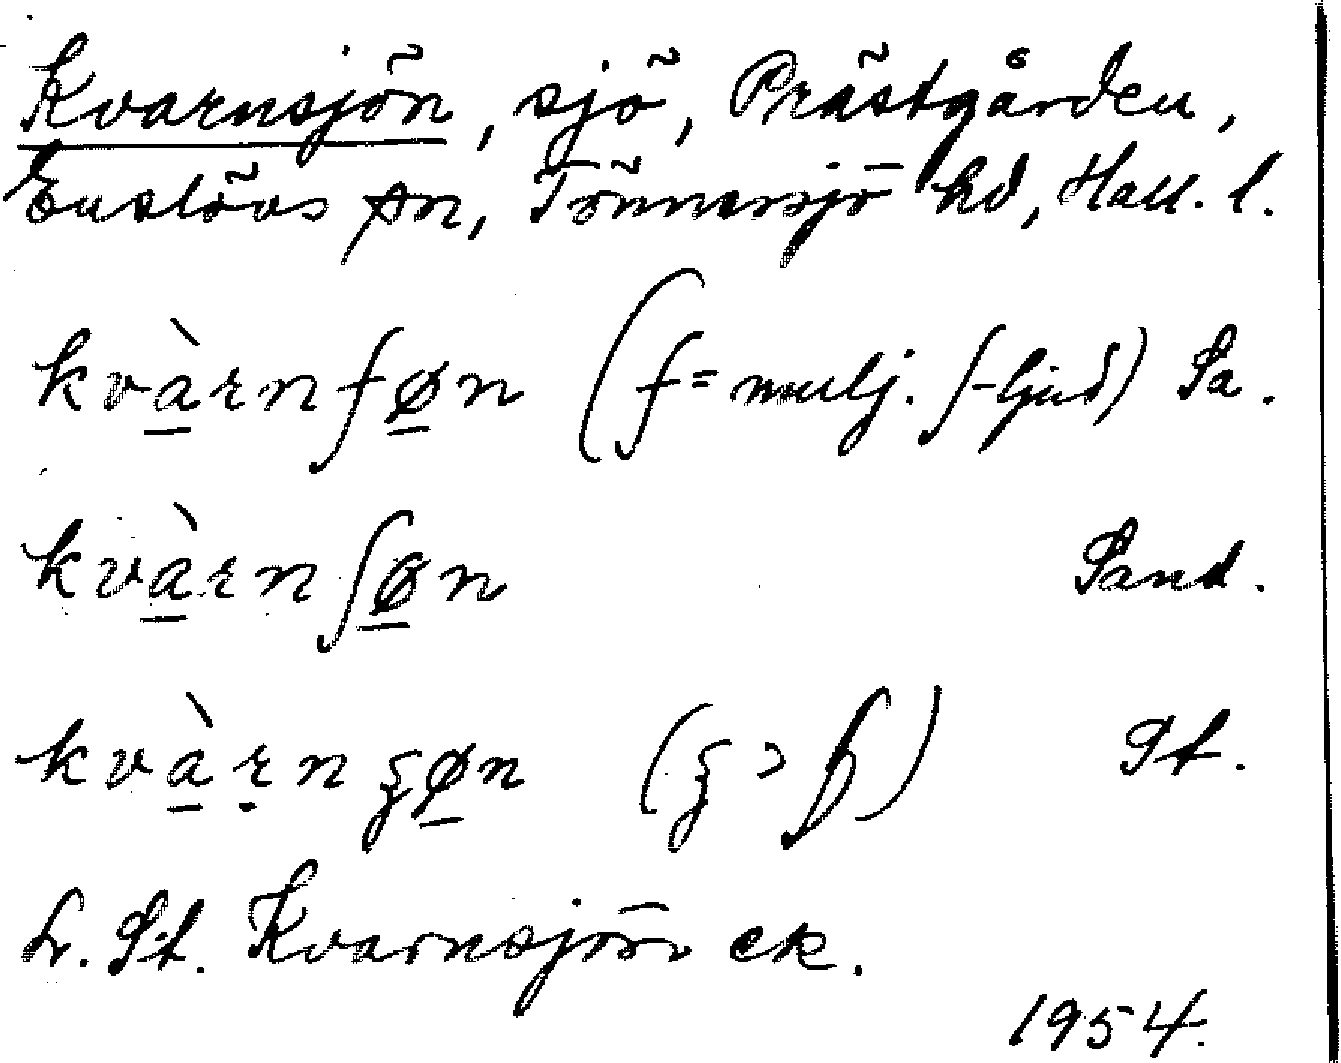 Kvarnsjön, sjö, Prästgården,
Enslövs sn, Tönnersjö hd, Hall. l.
kvàrnɟøn (ɟ = mulj. ʃ-ljud) Sa.
kvàrnʃøn Sand.
kvàṛnʓøn (ʓ > ) St.
Sr. St. Kvarnsjön ek.
1954.